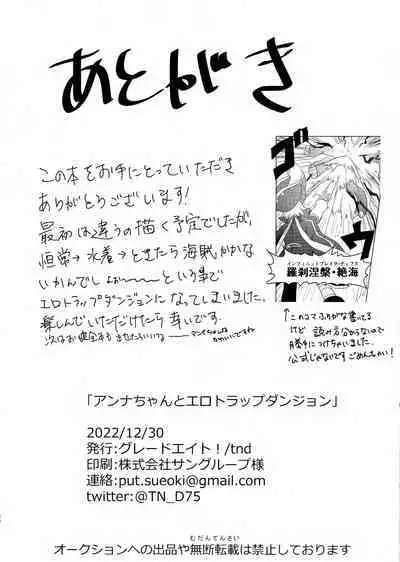 あとがき
この本をお手にとっていただき
ありがとうございます!
最初は違うの描く予定でしたが、
恒常→水着→ときたら海賊、かかな
いかんでしょぉーーーという事で
エロトラップダンジョンになってしまいました。
楽しんでいただけたら幸いです。
ゴオ
インフィニットブレイク・ディプス
羅刹涅槃・絶海
↑このコマふりがな書ってる
けど 読み方分からないので
勝手につけちゃいました。
公式じゃないです ごめんちゃい!
「アンナちゃんとエロトラップダンジョン」
2022/12/30
発行:グレードエイト!/tnd
印刷:株式会社サングループ様
連絡:put.sueoki@gmail.com
twitter:@TN_D75
むだんてんさい
オークションへの出品や無断転載は禁止しております